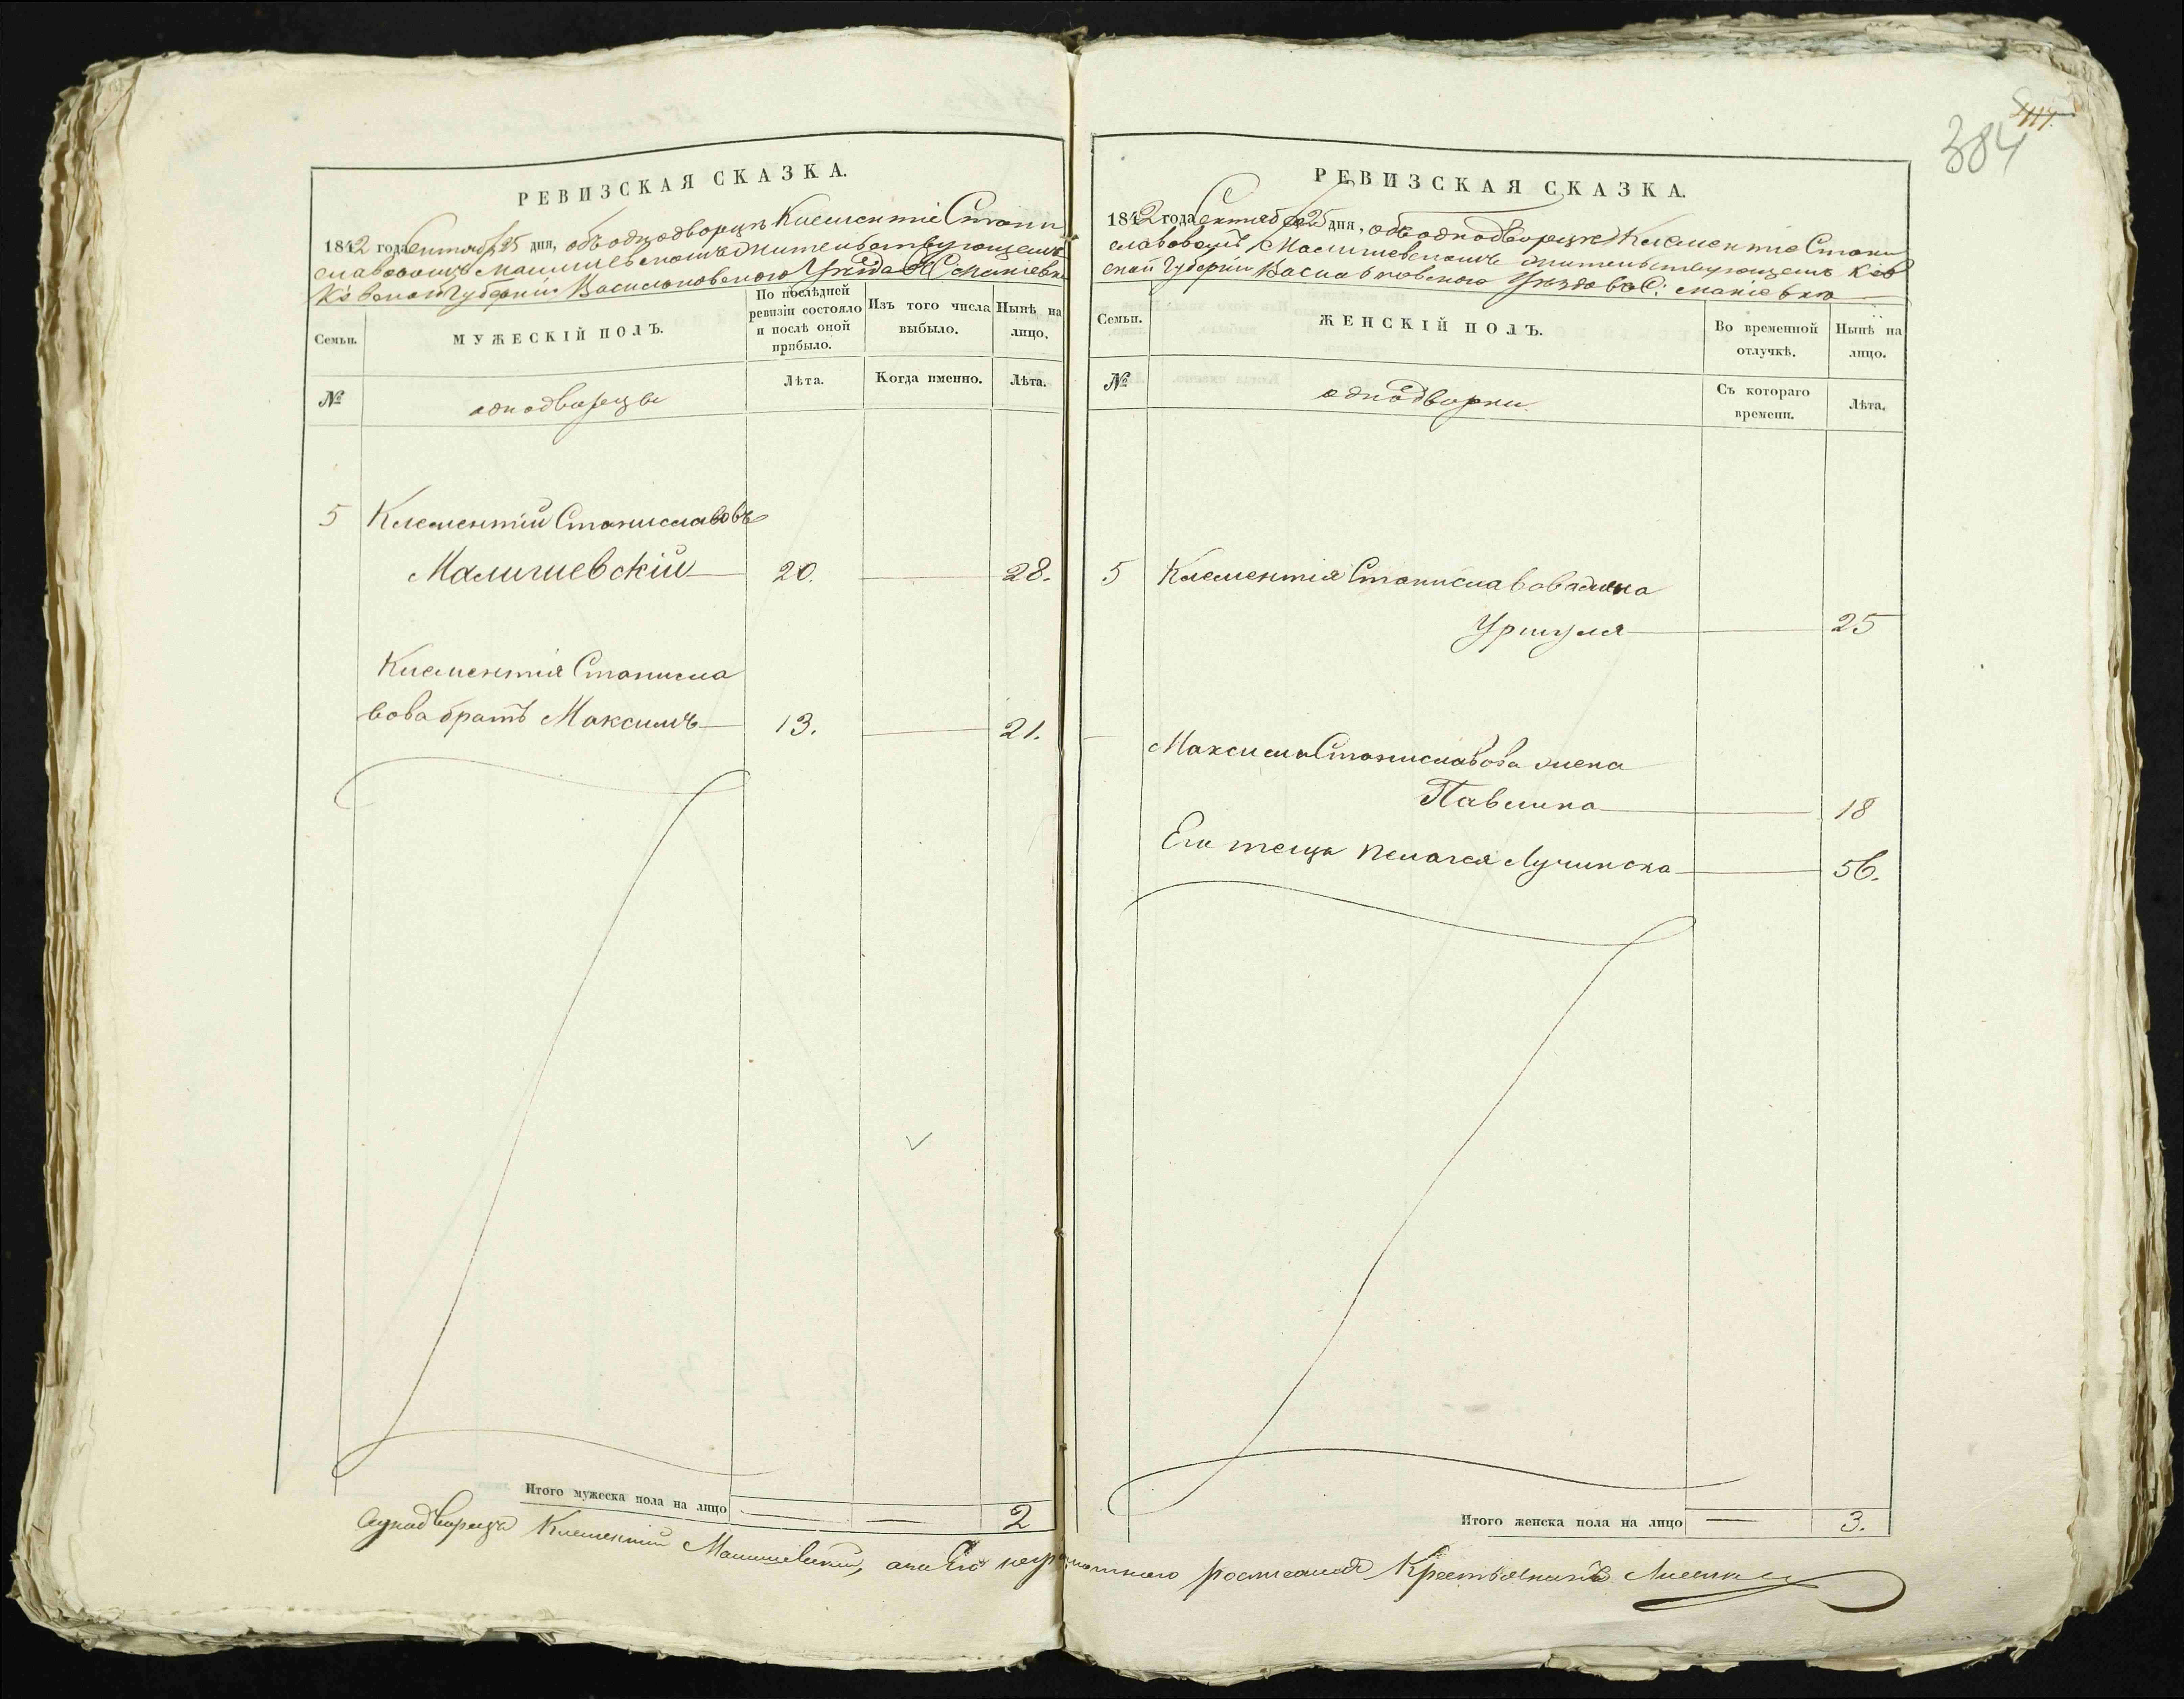 РЕВИЗСКАЯ СКАЗКА.
1842 года Сентября 25 дня, объ однодворцѣ Клементіе Стани
славовомъ Малишевскомъ жительствующемъ
Кіевской Губерніи Василковского Уѣзда въ С:
Семьи.
МУЖЕСКІЙ ПОЛЪ.
По послѣдней ревизіи состояло и послѣ оной прибыло.
Изъ того числа выбыло.
Нынѣ на лицо.
№
однодворцы
Лѣта.
Когда именно.
Лѣта.
5 Клементій Станиславовъ
Малишевскій 20. 28.
Клементія Станисла
вова братъ Максимъ 13. 21.
Итого мужеска пола на лицо 2
384
РЕВИЗСКАЯ СКАЗКА.
1842 года Сентября 25 дня, объ однодворцѣ Клементіе Стани
славовомъ Малишевскомъ жительствующемъ Кіев
ской Губерніи Василковского Уѣзда въ С:
Семьи.
ЖЕНСКІЙ ПОЛЪ.
Во временной отлучкѣ.
Нынѣ на лицо.
№
однодворки
Съ котораго времени.
Лѣта.
5 Клементія Станиславова жена
Уршуля 25
Максима Станиславова жена
Павлина 18
Его теща Пелагея Лучинска 56.
Итого женска пола на лицо 3.
Клементій Малишевский, а за его неграмотного росписался Крестьянинъ